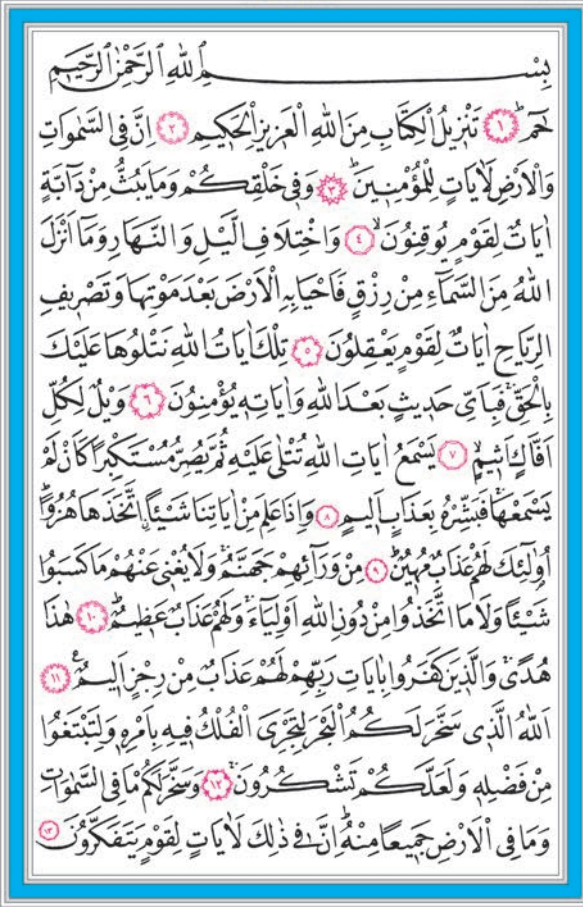 بِسْمِ اللهِ الرَّحْمٰنِ الرَّحٖيمِ
حٰمٓۜ ﴿١﴾ تَنْزٖيلُ الْكِتَابِ مِنَ اللهِ الْعَزٖيزِ الْحَكٖيمِ ﴿٢﴾ اِنَّ فِي السَّمٰوَاتِ
وَالْاَرْضِ لَاٰيَاتٍ لِلْمُؤْمِنٖينَۜ ﴿٣﴾ وَفٖي خَلْقِكُمْ وَمَا يَبُثُّ مِنْ دَٓابَّةٍ
اٰيَاتٌ لِقَوْمٍ يُوقِنُونَۙ ﴿٤﴾ وَاخْتِلَافِ الَّيْلِ وَالنَّهَارِ وَمَٓا اَنْزَلَ
اللهُ مِنَ السَّمَٓاءِ مِنْ رِزْقٍ فَاَحْيَا بِهِ الْاَرْضَ بَعْدَ مَوْتِهَا وَتَصْرٖيفِ
الرِّيَاحِ اٰيَاتٌ لِقَوْمٍ يَعْقِلُونَ ﴿٥﴾ تِلْكَ اٰيَاتُ اللهِ نَتْلُوهَا عَلَيْكَ
بِالْحَقِّۚ فَبِاَيِّ حَدٖيثٍ بَعْدَ اللهِ وَاٰيَاتِهٖ يُؤْمِنُونَ ﴿٦﴾ وَيْلٌ لِكُلِّ
اَفَّاكٍ اَثٖيمٍۙ ﴿٧﴾ يَسْمَعُ اٰيَاتِ اللهِ تُتْلٰى عَلَيْهِ ثُمَّ يُصِرُّ مُسْتَكْبِرًا كَاَنْ لَمْ
يَسْمَعْهَاۚ فَبَشِّرْهُ بِعَذَابٍ اَلٖيمٍ ﴿٨﴾ وَاِذَا عَلِمَ مِنْ اٰيَاتِنَا شَيْـًٔاۨ اتَّخَذَهَا هُزُوًاۜ
اُو۬لٰٓئِكَ لَهُمْ عَذَابٌ مُهٖينٌۜ ﴿٩﴾ مِنْ وَرَٓائِهِمْ جَهَنَّمُۚ وَلَا يُغْنٖي عَنْهُمْ مَا كَسَبُوا
شَيْـًٔا وَلَا مَا اتَّخَذُوا مِنْ دُونِ اللهِ اَوْلِيَٓاءَۚ وَلَهُمْ عَذَابٌ عَظٖيمٌۜ ﴿١٠﴾ هٰذَا
هُدًىۚ وَالَّذٖينَ كَفَرُوا بِاٰيَاتِ رَبِّهِمْ لَهُمْ عَذَابٌ مِنْ رِجْزٍ اَلٖيمٌۚ ع ﴿١١﴾
اَللهُ الَّذٖي سَخَّرَ لَكُمُ الْبَحْرَ لِتَجْرِيَ الْفُلْكُ فٖيهِ بِاَمْرِهٖ وَلِتَبْتَغُوا
مِنْ فَضْلِهٖ وَلَعَلَّكُمْ تَشْكُرُونَۚ ﴿١٢﴾ وَسَخَّرَ لَكُمْ مَا فِي السَّمٰوَاتِ
وَمَا فِي الْاَرْضِ جَمٖيعًا مِنْهُۜ اِنَّ فٖي ذٰلِكَ لَاٰيَاتٍ لِقَوْمٍ يَتَفَكَّرُونَ ﴿١٣﴾